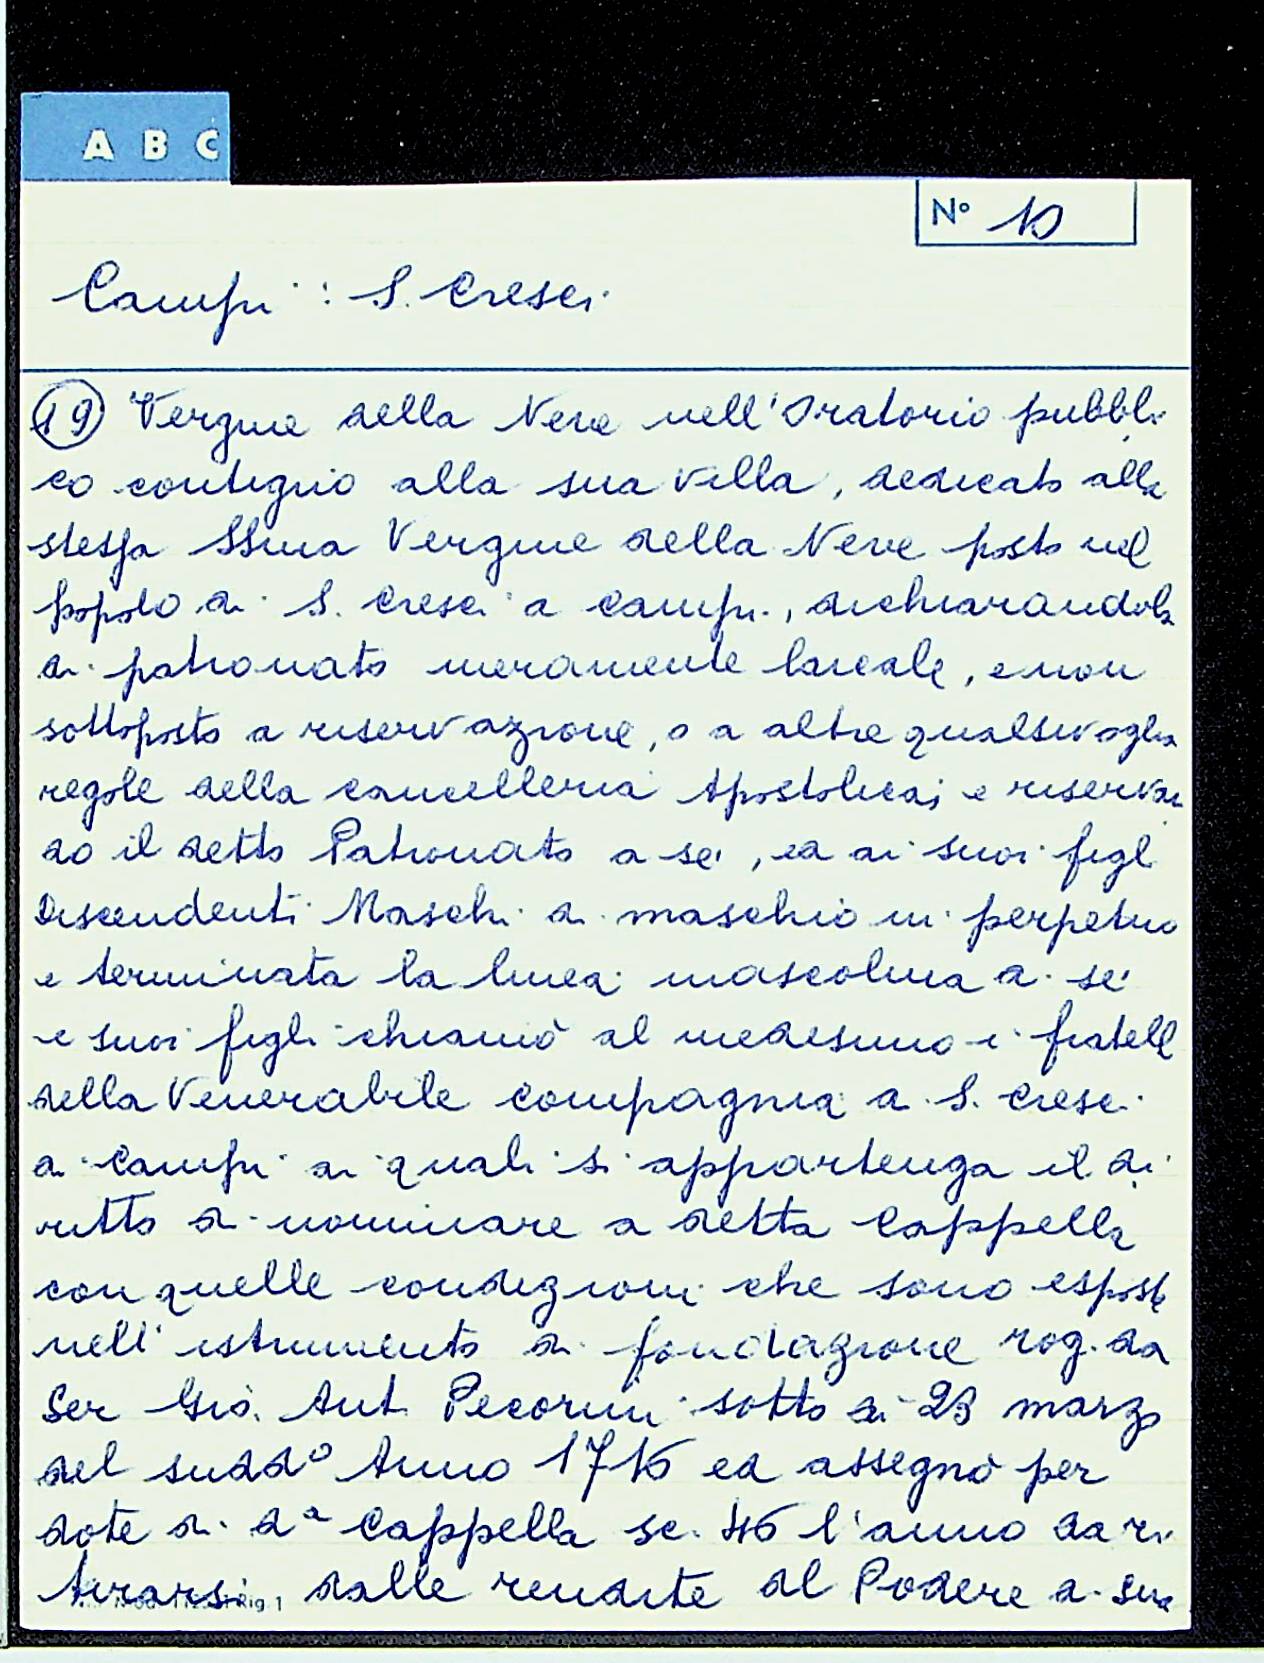 A B C
N° 10
Campi : S. Cresci
19 Vergine della Neve nell'Oratorio pubbli
co contiguo alla sua villa, dedicato alla
stessa SSma Vergine della Neve posto nel
popolo di S. Cresci a Campi, dichiarandola
di patronato meramente laicale, e non
sottoposto a riservazione, o a altre qualsivoglia
regole della Cancelleria Apostolica; e riservan
do il detto Patronato a sé, ed ai suoi figli
Discendenti Maschi di maschio in perpetuo
e terminata la linea mascolina di sé
e suoi figli chiamò al medesimo i fratelli
della Venerabile Compagnia di S. Cresci
a Campi ai quali si appartenga il di
ritto di nominare a detta Cappella
con quelle condizioni che sono esposte
nell'istrumento di fondazione rog. da
Ser Gio. Ant. Pecorini sotto di 23 marzo
del sudd° Anno 1716 ed assegnò per
dote di dª Cappella sc. 46 l'anno da ri
tirarsi dalle rendite del Podere di sua
Rig. 1